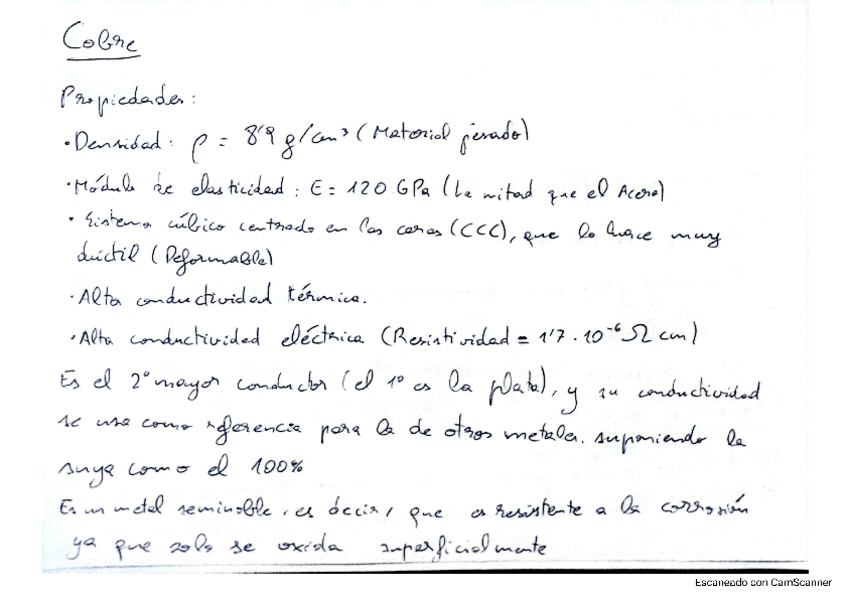 Cobre
Propiedades:
• Densidad: ρ = 8'9 g/cm³ (Material pesado)
• Módulo de elasticidad: E = 120 GPa (La mitad que el Acero)
• Sistema cúbico centrado en las caras (CCC), que lo hace muy
dúctil (Deformable)
• Alta conductividad térmica.
• Alta conductividad eléctrica (Resistividad = 1'7 · 10⁻⁶ Ω cm)
Es el 2º mayor conductor (el 1º es la plata), y su conductividad
se usa como referencia para la de otros metales, suponiendo la
suya como el 100%
Es un metal seminoble, es decir, que es resistente a la corrosión
ya que solo se oxida superficialmente
Escaneado con CamScanner